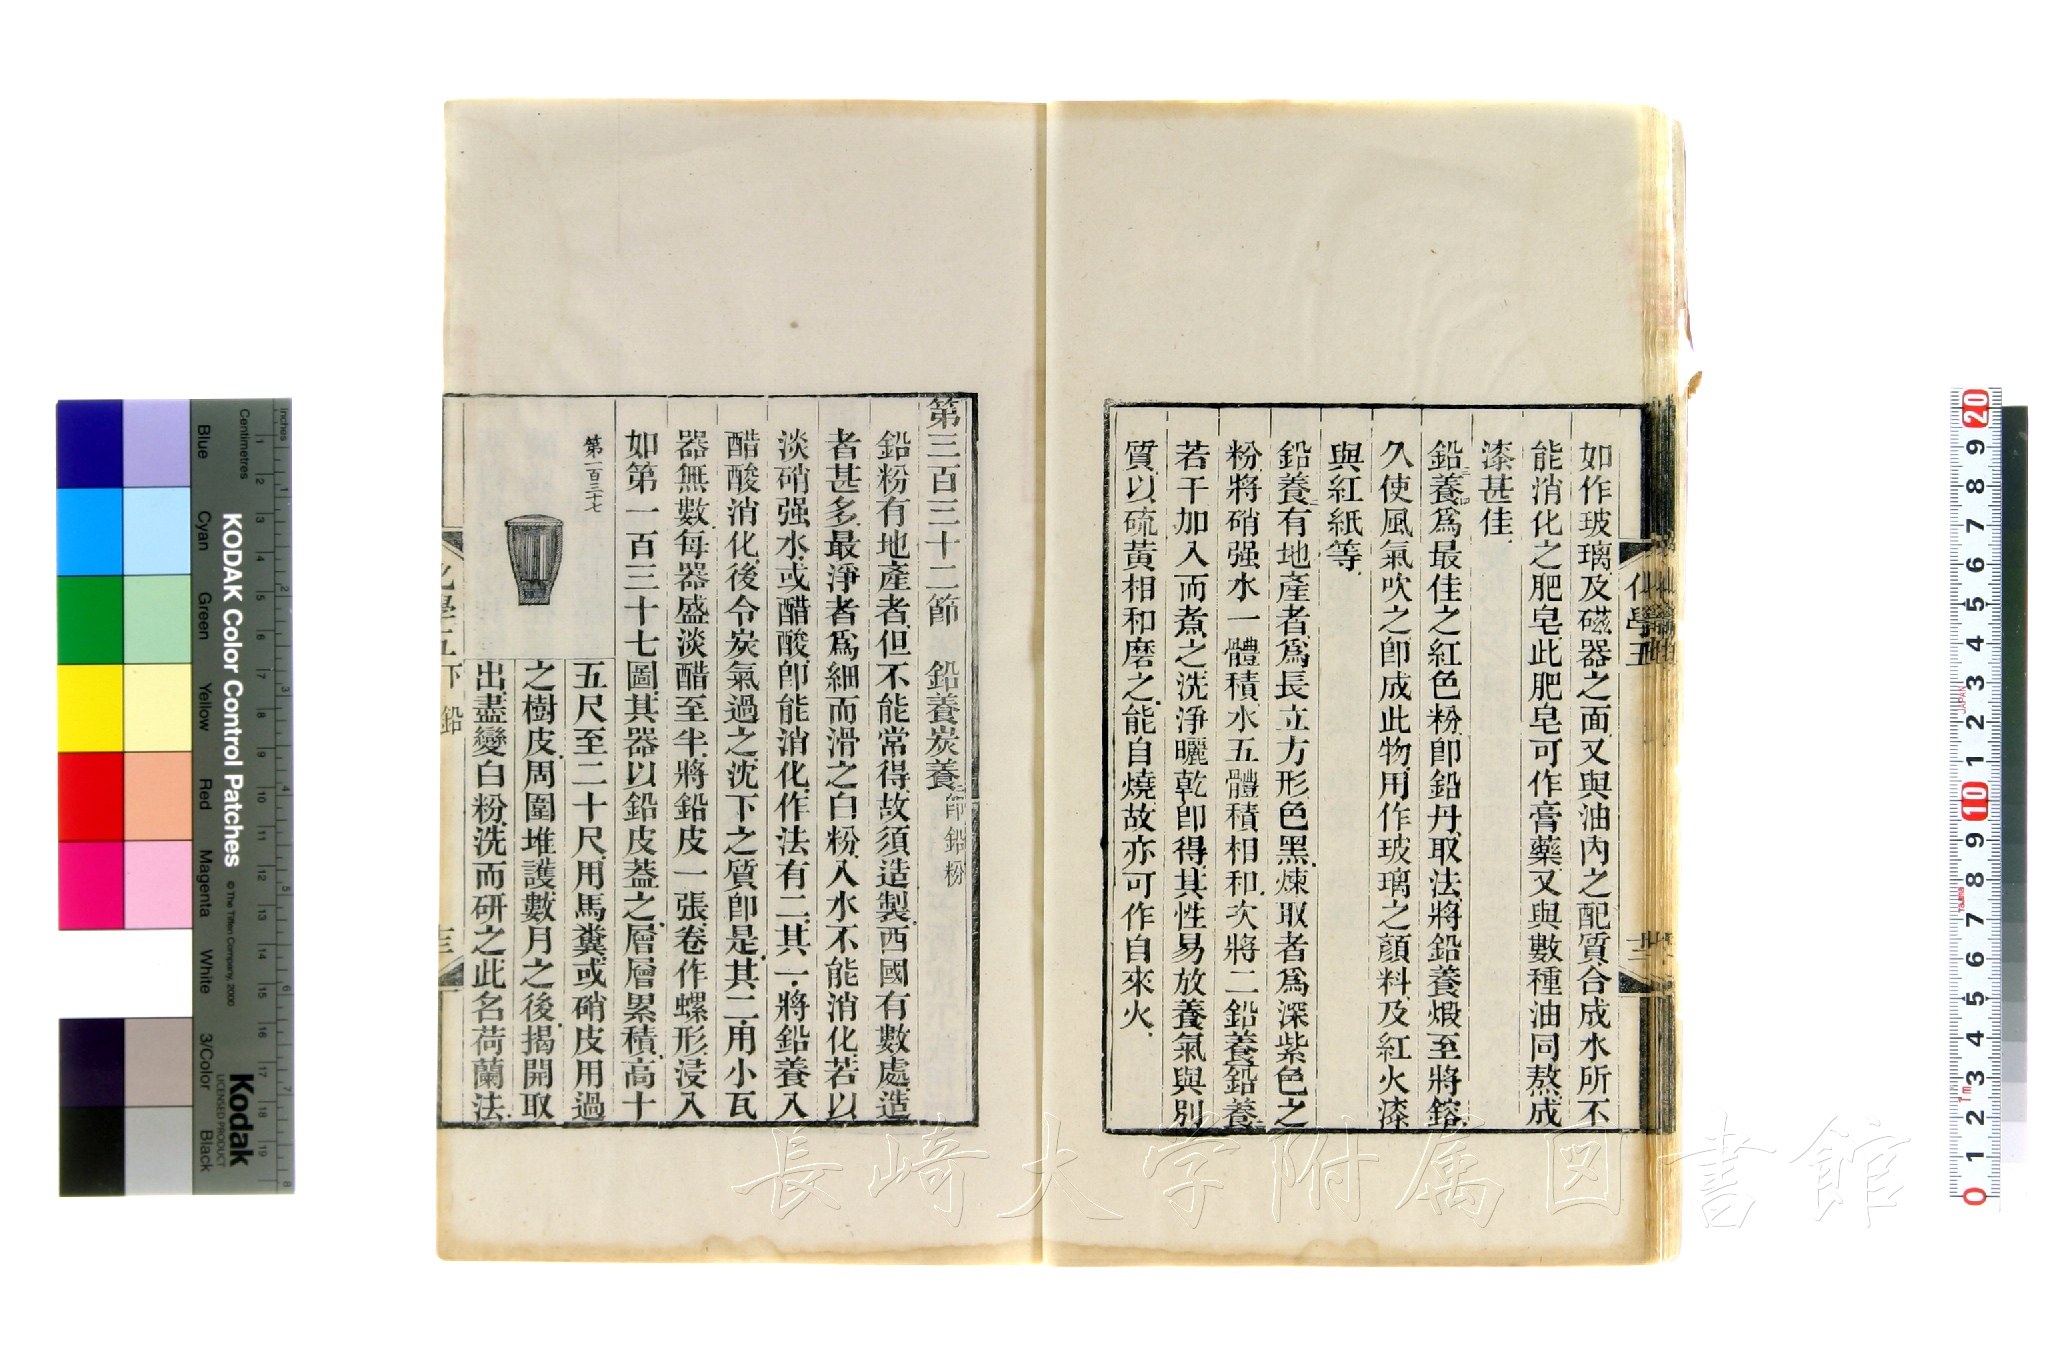 如作玻璃及磁器之面又與油內之配質合成水所不
能消化之肥皂此肥皂可作膏藥又與數種油同熬成
漆甚佳
鉛三養四爲最佳之紅色粉卽鉛丹取法將鉛養煅至將鎔
久使風氣吹之卽成此物用作玻璃之顏料及紅火漆
與紅紙等
鉛養二有地產者爲長立方形色黑煉取者爲深紫色之
粉將硝强水一體積水五體積相和次將二鉛養鉛養二
若干加入而煮之洗淨曬乾卽得其性易放養氣與別
質以硫黃相和磨之能自燒故亦可作自來火
第三百三十二節 鉛養炭養二卽鉛粉
鉛粉有地產者但不能常得故須造製西國有數處造
者甚多最淨者爲細而滑之白粉入水不能消化若以
淡硝强水或醋酸卽能消化作法有二其一將鉛養入
醋酸消化後令炭氣過之沈下之質卽是其二用小瓦
器無數每器盛淡醋至半將鉛皮一張卷作螺形浸入
如第一百三十七圖其器以鉛皮蓋之層層累積高十
第一百三十七
五尺至二十尺用馬糞或硝皮用過
之樹皮周圍堆護數月之後揭開取
出盡變白粉洗而研之此名荷蘭法
化學五
下 鉛
KODAK Color Control Patches
© The Tiffen Company, 2000
Kodak
LICENSED PRODUCT
Centimetres
Inches
Blue
Cyan
Green
Yellow
Red
Magenta
White
3/Color
Black
1 2 3 4 5 6 7 8 9 10 11 12 13 14 15 16 17 18 19
1 2 3 4 5 6 7 8
20 9 8 7 6 5 4 3 2 1 10 9 8 7 6 5 4 3 2 1 0
JAPAN
Tajima
長崎大学附属図書館